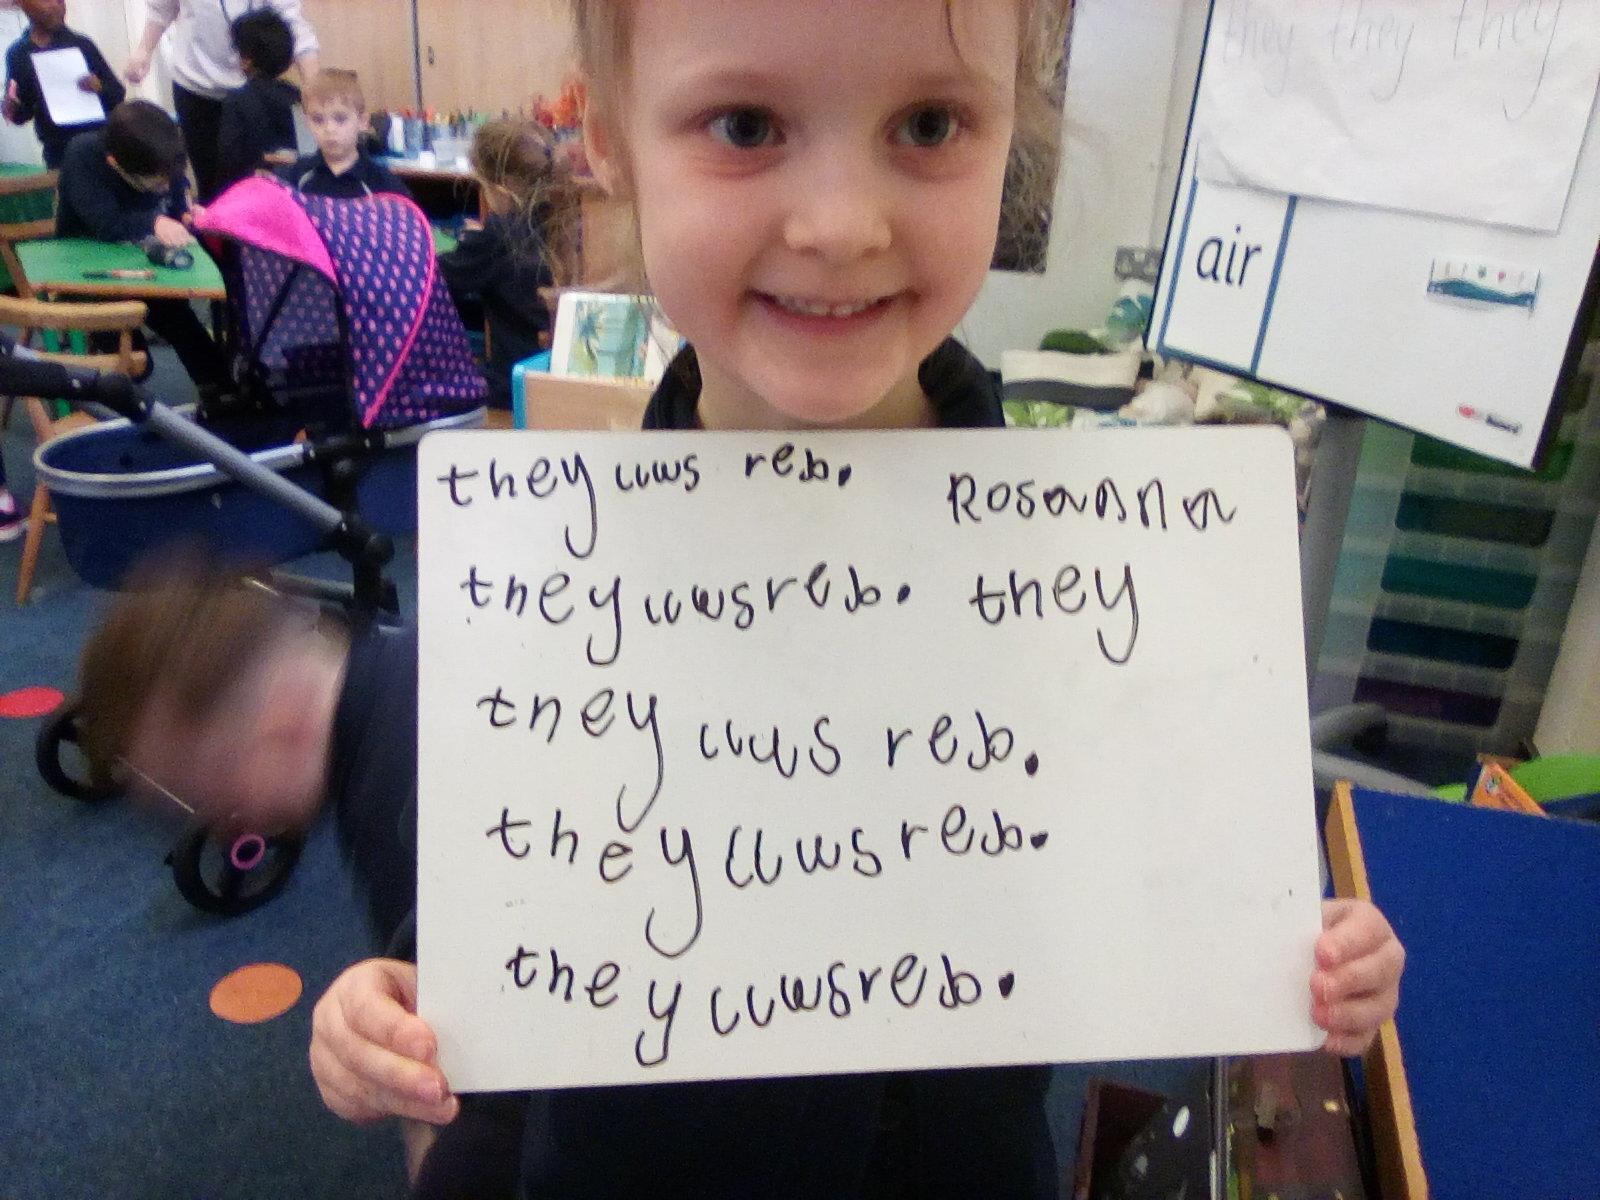 they they they
air
they uws reb. Rosanna
they uwsreb. they
they uws reb.
they uwsreb.
they uwsreb.